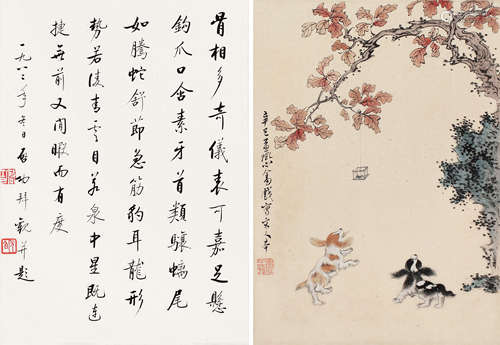 骨相多奇儀表可嘉足懸
鈎爪口含素牙首類驤螭尾
如騰蛇舒節急筋豹耳龍形
勢若凌青雲目若泉中星既迅
捷無前又閒暇而有度
一九八 年 日啟功拜觀并題
辛巳 戲寫宋人本